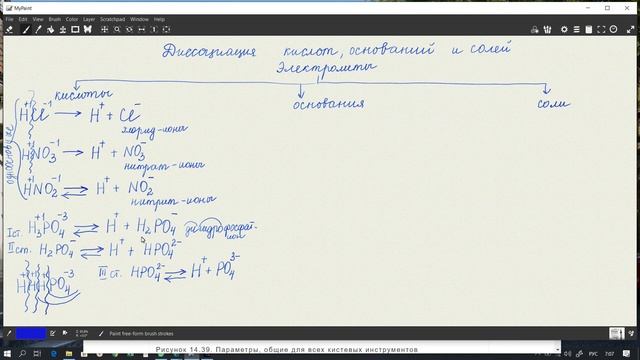 MyPaint
File Edit View Brush Color Layer Scratchpad Window Help
Диссоциация кислот, оснований и солей
Электролиты
кислоты
основания
соли
одноосновные
H⁺¹Cl⁻¹ → H⁺ + Cl⁻
хлорид-ионы
H⁺¹NO₃⁻¹ → H⁺ + NO₃⁻
нитрат-ионы
H⁺¹NO₂⁻¹ ⇄ H⁺ + NO₂⁻
нитрит-ионы
I ст. H₃⁺¹PO₄⁻³ ⇄ H⁺ + H₂PO₄⁻ дигидрофосфат-ион
II ст. H₂PO₄⁻ ⇄ H⁺ + HPO₄²⁻
H⁺¹H⁺¹H⁺¹PO₄⁻³ III ст. HPO₄²⁻ ⇄ H⁺ + PO₄³⁻
Paint free-form brush strokes
Рисунок 14.39. Параметры, общие для всех кистевых инструментов
РУС 7:07